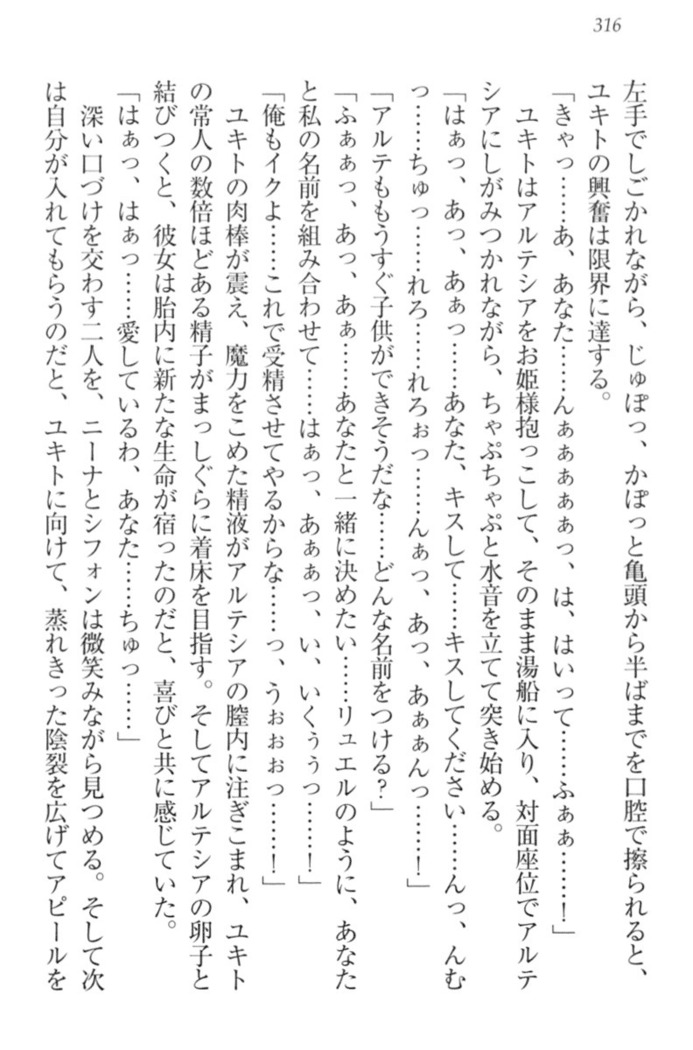 316
左手でしごかれながら、じゅぽっ、かぽっと亀頭から半ばまでを口腔で擦られると、
ユキトの興奮は限界に達する。
「きゃっ……あ、あなた……んぁぁぁぁぁっ、は、はいって……ふぁぁ……！」
ユキトはアルテシアをお姫様抱っこして、そのまま湯船に入り、対面座位でアルテ
シアにしがみつかれながら、ちゃぷちゃぷと水音を立てて突き始める。
「はぁっ、あっ、あぁっ……あなた、キスして……キスしてください……んっ、んむ
っ……ちゅっ……れろ……れろぉっ……んぁっ、あっ、あぁぁんっ……！」
「アルテももうすぐ子供ができそうだな……どんな名前をつける？」
「ふぁぁっ、あっ、あぁ……あなたと一緒に決めたい……リュエルのように、あなた
と私の名前を組み合わせて……はぁっ、あぁぁっ、い、いくぅぅっ……！」
「俺もイクよ……これで受精させてやるからな……っ、うぉぉおっ……！」
ユキトの肉棒が震え、魔力をこめた精液がアルテシアの膣内に注ぎこまれ、ユキト
の常人の数倍ほどある精子がまっしぐらに着床を目指す。そしてアルテシアの卵子と
結びつくと、彼女は胎内に新たな生命が宿ったのだと、喜びと共に感じていた。
「はぁっ、はぁっ……愛しているわ、あなた……ちゅっ……」
深い口づけを交わす二人を、ニーナとシフォンは微笑みながら見つめる。そして次
は自分が入れてもらうのだと、ユキトに向けて、蒸れきった陰裂を広げてアピールを